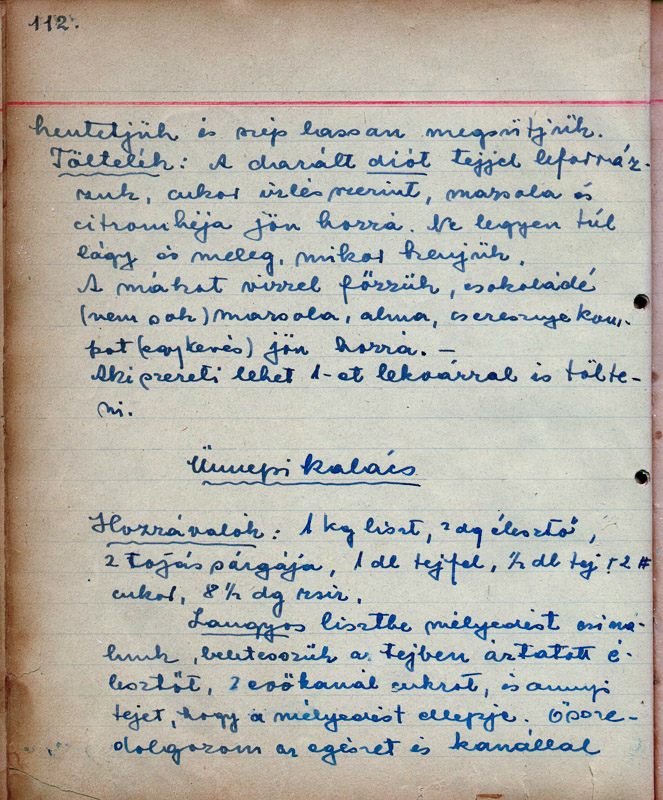 112.
kentetjük és szép lassan megsütjük.
Töltelék: A darált diót tejjel leforráz-
zuk, cukor izlés szerint, mazsola és
citromhéja jön hozzá. Ne legyen túl
lágy és meleg, mikor kenjük.
A mákot vizzel főzzük, csokoládé
(nem sok) mazsola, alma, cseresznye kom-
pot (egy kevés) jön hozzá. –
Aki szereti lehet 1-et lekvárral is tölte-
ni.
Ünnepi kalács
Hozzávalók: 1 kg liszt, 2 dg élesztő,
2 tojás sárgája, 1 dl tejfel, 1/2 dl tej
cukor, 8 1/2 dg zsir.
Langyos lisztbe mélyedést csiná-
lunk, beletesszük a tejben áztatott é-
lesztőt, 2 evőkanál cukrot, és annyi
tejet, hogy a mélyedést ellepje. Össze-
dolgozom az egészet és kanállal